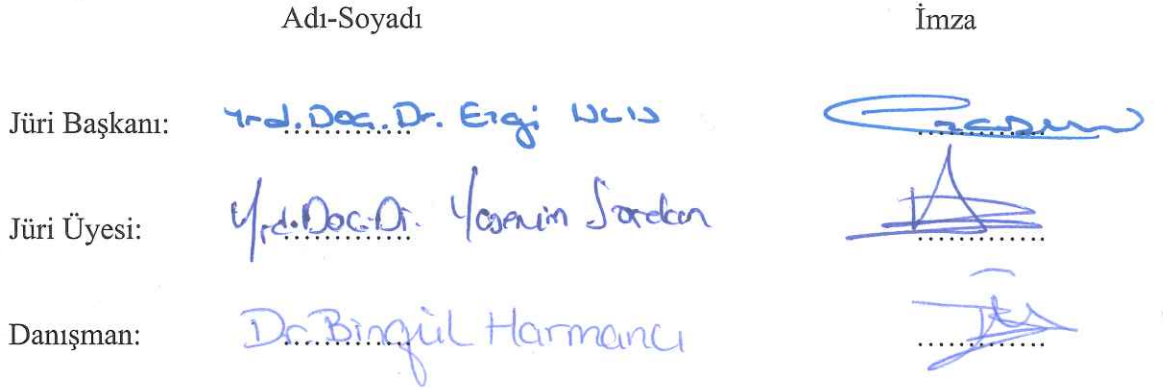 Adı-Soyadı İmza
Jüri Başkanı: Yrd.Doç.Dr. Ezgi
Jüri Üyesi: Yrd.Doç.Dr. Yasemin
Danışman: Dr. Birgül Harmancı